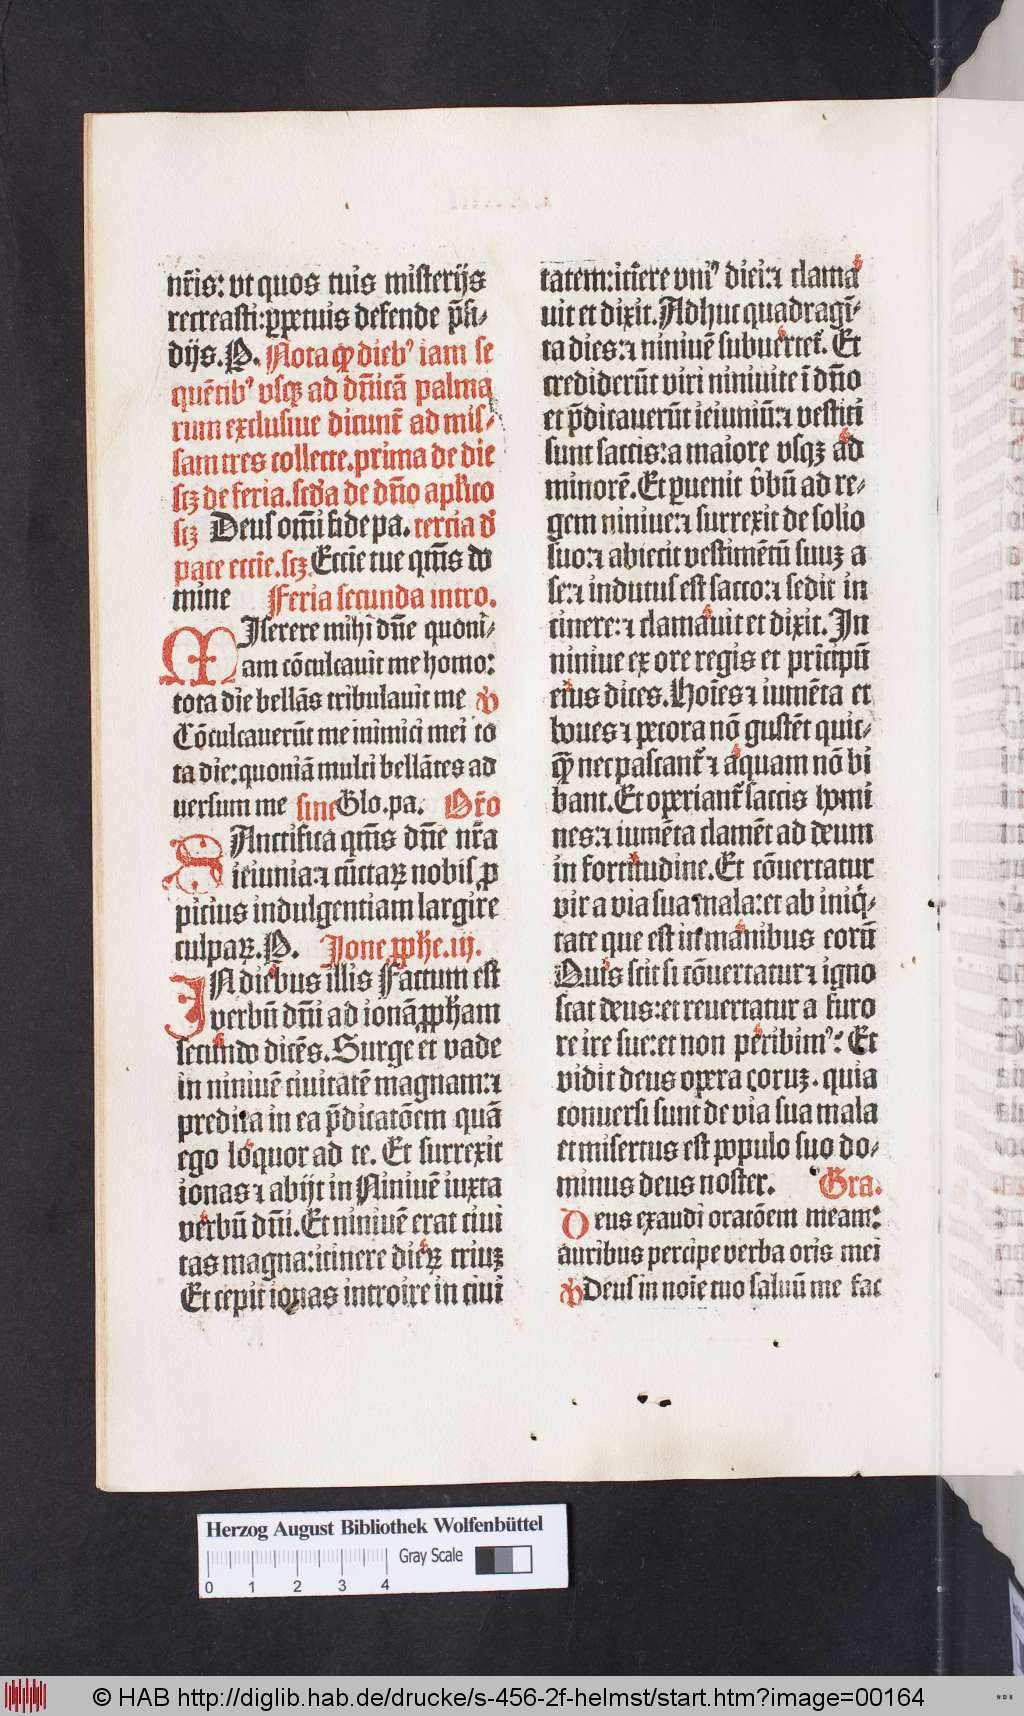 nr̃is: vt quos tuis misterijs
recreasti: ꝑpetuis defende p̃si-
dijs. P. Nota ꝙ dieb⁹ iam se
quẽtib⁹ vsqꝫ ad dñicã palma
rum exclusiue dicunt̃ ad mis-
sam tres collecte. prima de die
scꝫ de feria. scd̃a de dño aplico
scꝫ Deus om̃i fide pa. tercia d̃
pace eccĩe. scꝫ. Eccĩe tue qm̃s do
mine Feria secunda intro.
MIserere mihi dñe quoni-
am cõculcauit me homo:
tota die bellãs tribulauit me ꝟ
Cõculcauerũt me inimici mei to
ta die: quoniã multi bellãtes ad
uersum me sine Glo. pa. Or̃o
SAnctifica qm̃s dñe nr̃a
ieiunia: ⁊ cũctaꝝ nobis ꝓ
picius indulgentiam largire
culpaꝝ. P. Ione ꝓphe. iij.
IN diebus illis Factum est
verbũ dñi ad ionã ꝓpham
secundo dicẽs. Surge et vade
in niniuẽ ciuitatẽ magnam: ⁊
predica in ea p̃dicatõem quã
ego loquor ad te. Et surrexit
ionas ⁊ abijt in Niniuẽ iuxta
verbũ dñi. Et niniuẽ erat ciui
tas magna: itinere dieꝝ triuꝫ
Et cepit ionas introire in ciui
tatem: itĩere vni⁹ diei: ⁊ clama
uit et dixit. Adhuc quadragĩ-
ta dies: ⁊ niniuẽ subuertet̃. Et
crediderũt viri niniuite ĩ dño
et p̃dicauerũt ieiuniũ: ⁊ vestiti
sunt saccis: a maiore vsqꝫ ad
minorẽ. Et ꝑuenit v̓bũ ad re-
gem niniue: ⁊ surrexit de solio
suo: ⁊ abiecit vestimẽtũ suuꝫ a
se: ⁊ indutus est sacco: ⁊ sedit in
cinere: ⁊ clamauit et dixit. In
niniue ex ore regis et prĩcipũ
eius dices. Hoĩes ⁊ iumẽta et
boues ⁊ pecora nõ gustẽt quic-
ꝙ nec pascant̃ ⁊ aquam nõ bi
bant. Et operiant̃ saccis homi
nes: ⁊ iumẽta clamẽt ad deum
in fortitudine. Et cõuertatur
vir a via sua mala: et ab iniq̃-
tate que est in manibus eorũ
Quis scit si cõuertatur ⁊ igno
scat deus: et reuertatur a furo
re ire sue: et non peribim⁹: Et
vidit deus opera eoruꝫ. quia
conuersi sunt de via sua mala
et misertus est populo suo do-
minus deus noster. Gra.
Deus exaudi oratõem meam:
auribus percipe verba oris mei
ꝟ Deus in noĩe tuo saluũ me fac
Herzog August Bibliothek Wolfenbüttel
Gray Scale
0 1 2 3 4
© HAB http://diglib.hab.de/drucke/s-456-2f-helmst/start.htm?image=00164